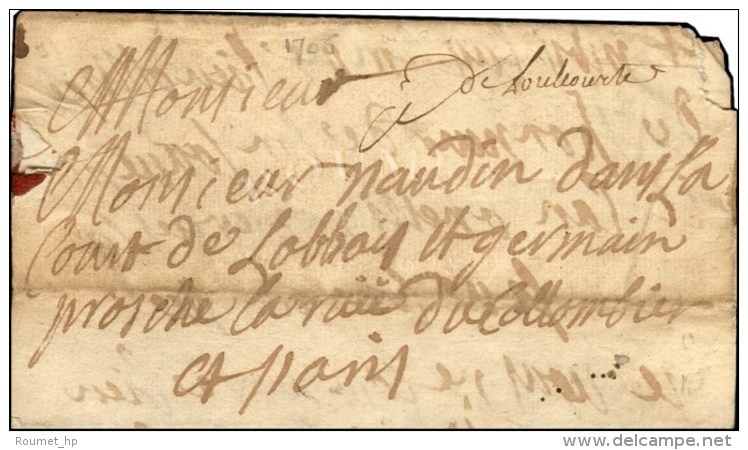 1706
Monsieur
de Loulcourte
Monsieur naudin dans la
Court de Labbaij st germain
prosche la ruë du Collombier
A paris
Roumet_hp
delcampe.net